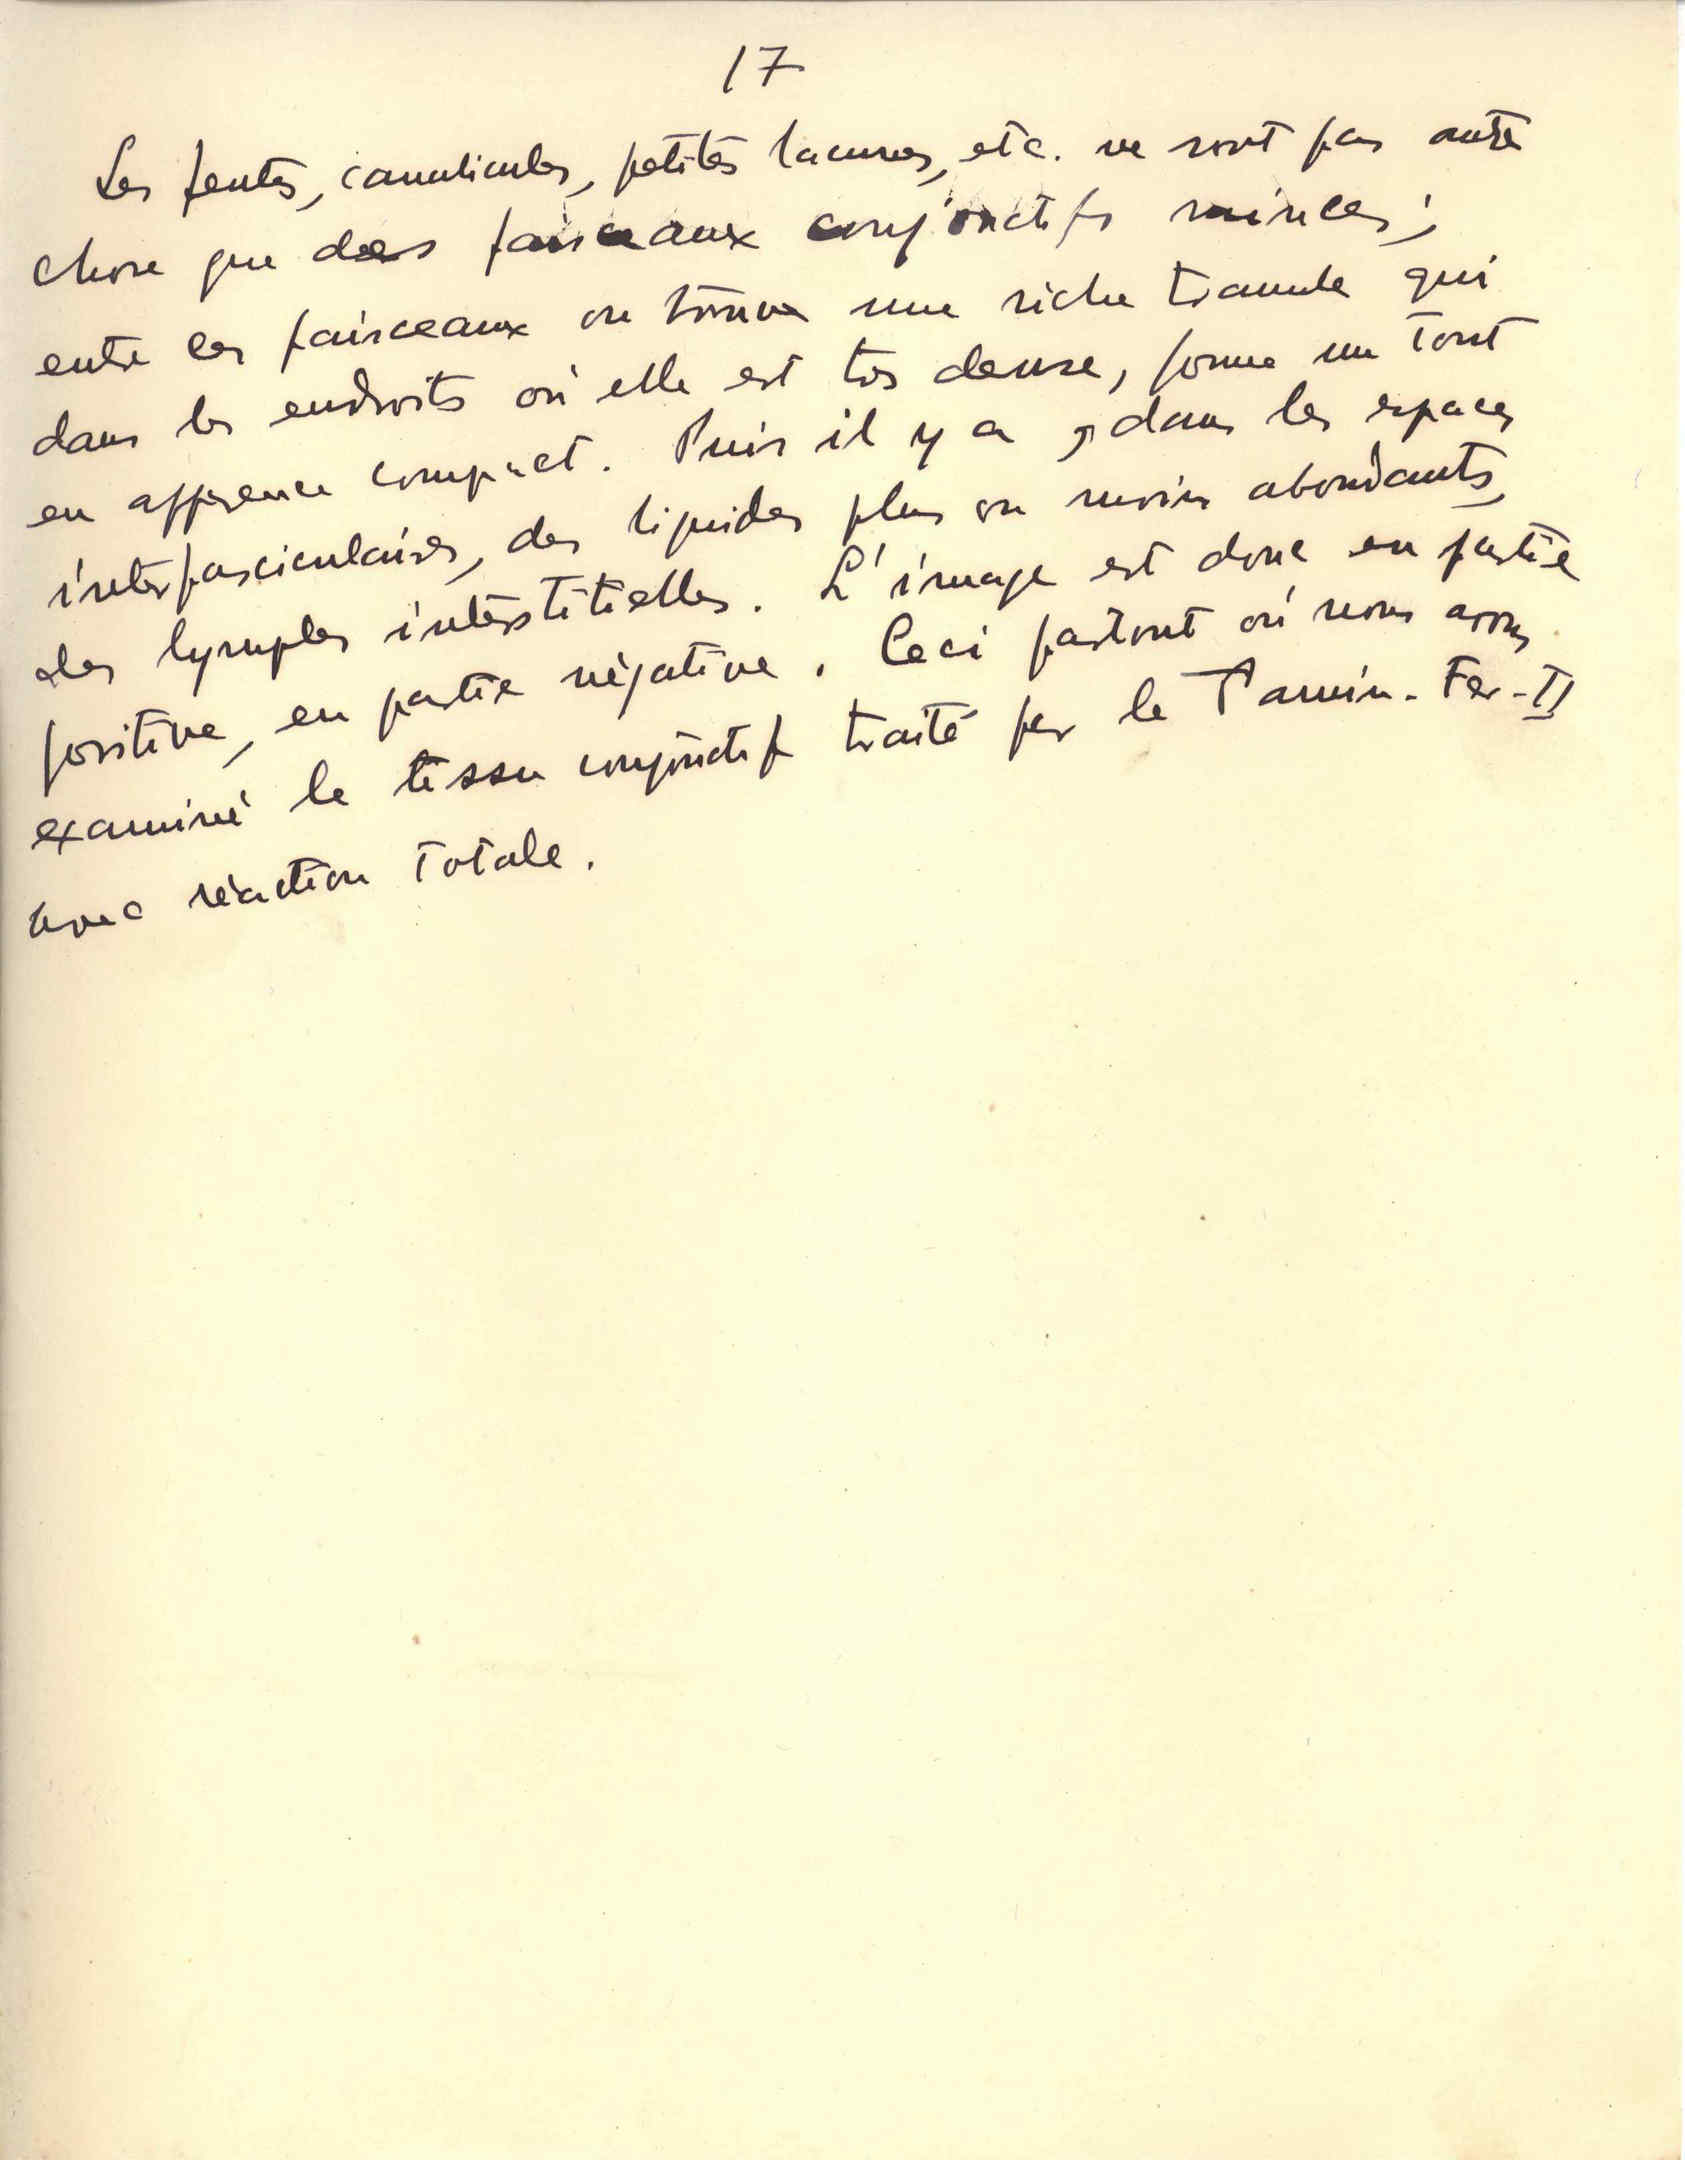 17
Les fentes, canalicules, petites lacunes, etc. ne sont pas autre
chose que des faisceaux conjonctifs minces ;
entre les faisceaux on trouve une riche tramule qui
dans les endroits où elle est très dense, forme un tout
en apparence compact. Puis il y a , dans les espaces
interfasciculaires, des liquides plus ou moins abondants,
des lymphes interstitielles. L'image est donc en partie
positive, en partie négative. Ceci partout où nous avons
examiné le tissu conjonctif traité par le Tannin-Fer-II
avec réaction totale.